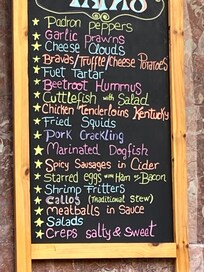 TAPAS
Padron peppers
Garlic prawns
Cheese Clouds
Bravas/Truffle/Cheese Potatoes
Fuet Tartar
Beetroot Hummus
Cuttlefish with Salad
Chicken Tenderloins Kentucky
Fried Squids
Pork Crackling
Marinated Dogfish
Spicy Sausages in Cider
Starred eggs with Ham or Bacon
Shrimp Fritters
Callos (traditional stew)
Meatballs in Sauce
Salads
Creps salty & sweet